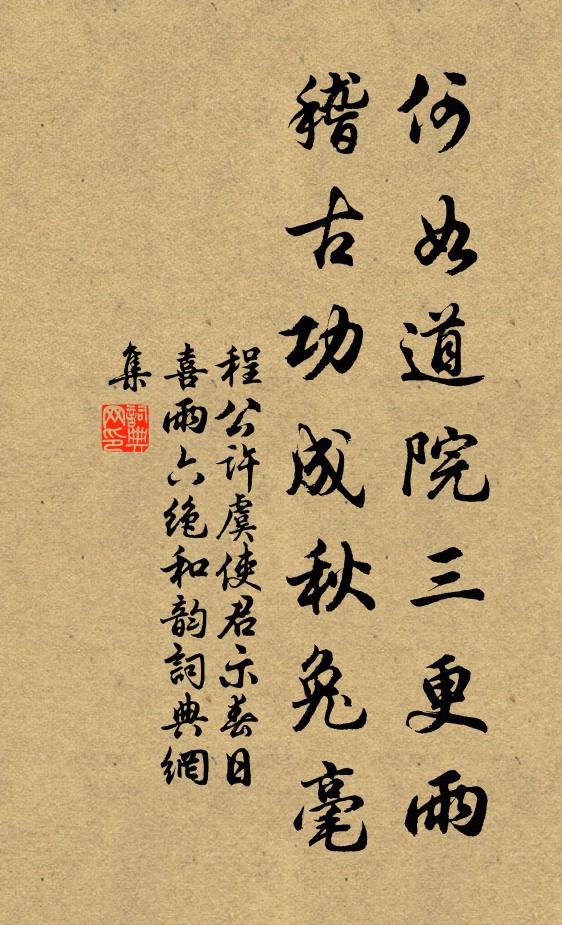 何如道院三更雨
稽古功成秋兔毫
程公許虞使君示春日
喜雨六絶和韵詞典網
集
詞典
网印